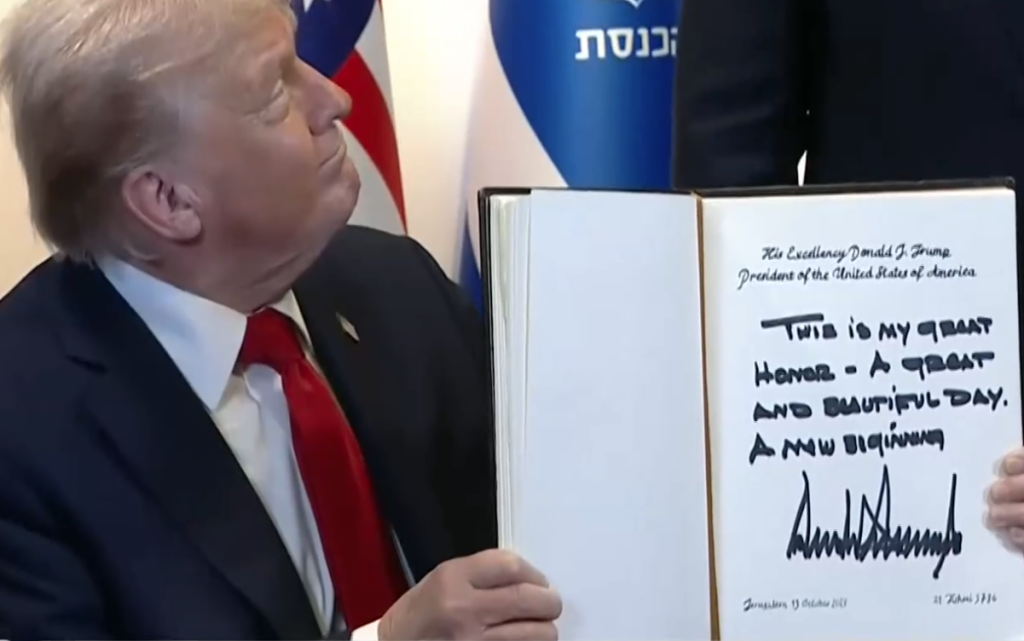 הכנסת
His Excellency Donald J. Trump
President of the United States of America
THIS IS MY GREAT
HONOR - A GREAT
AND BEAUTIFUL DAY.
A NEW BEGINNING
Jerusalem, 13 October 2025
21 Tishrei 5786